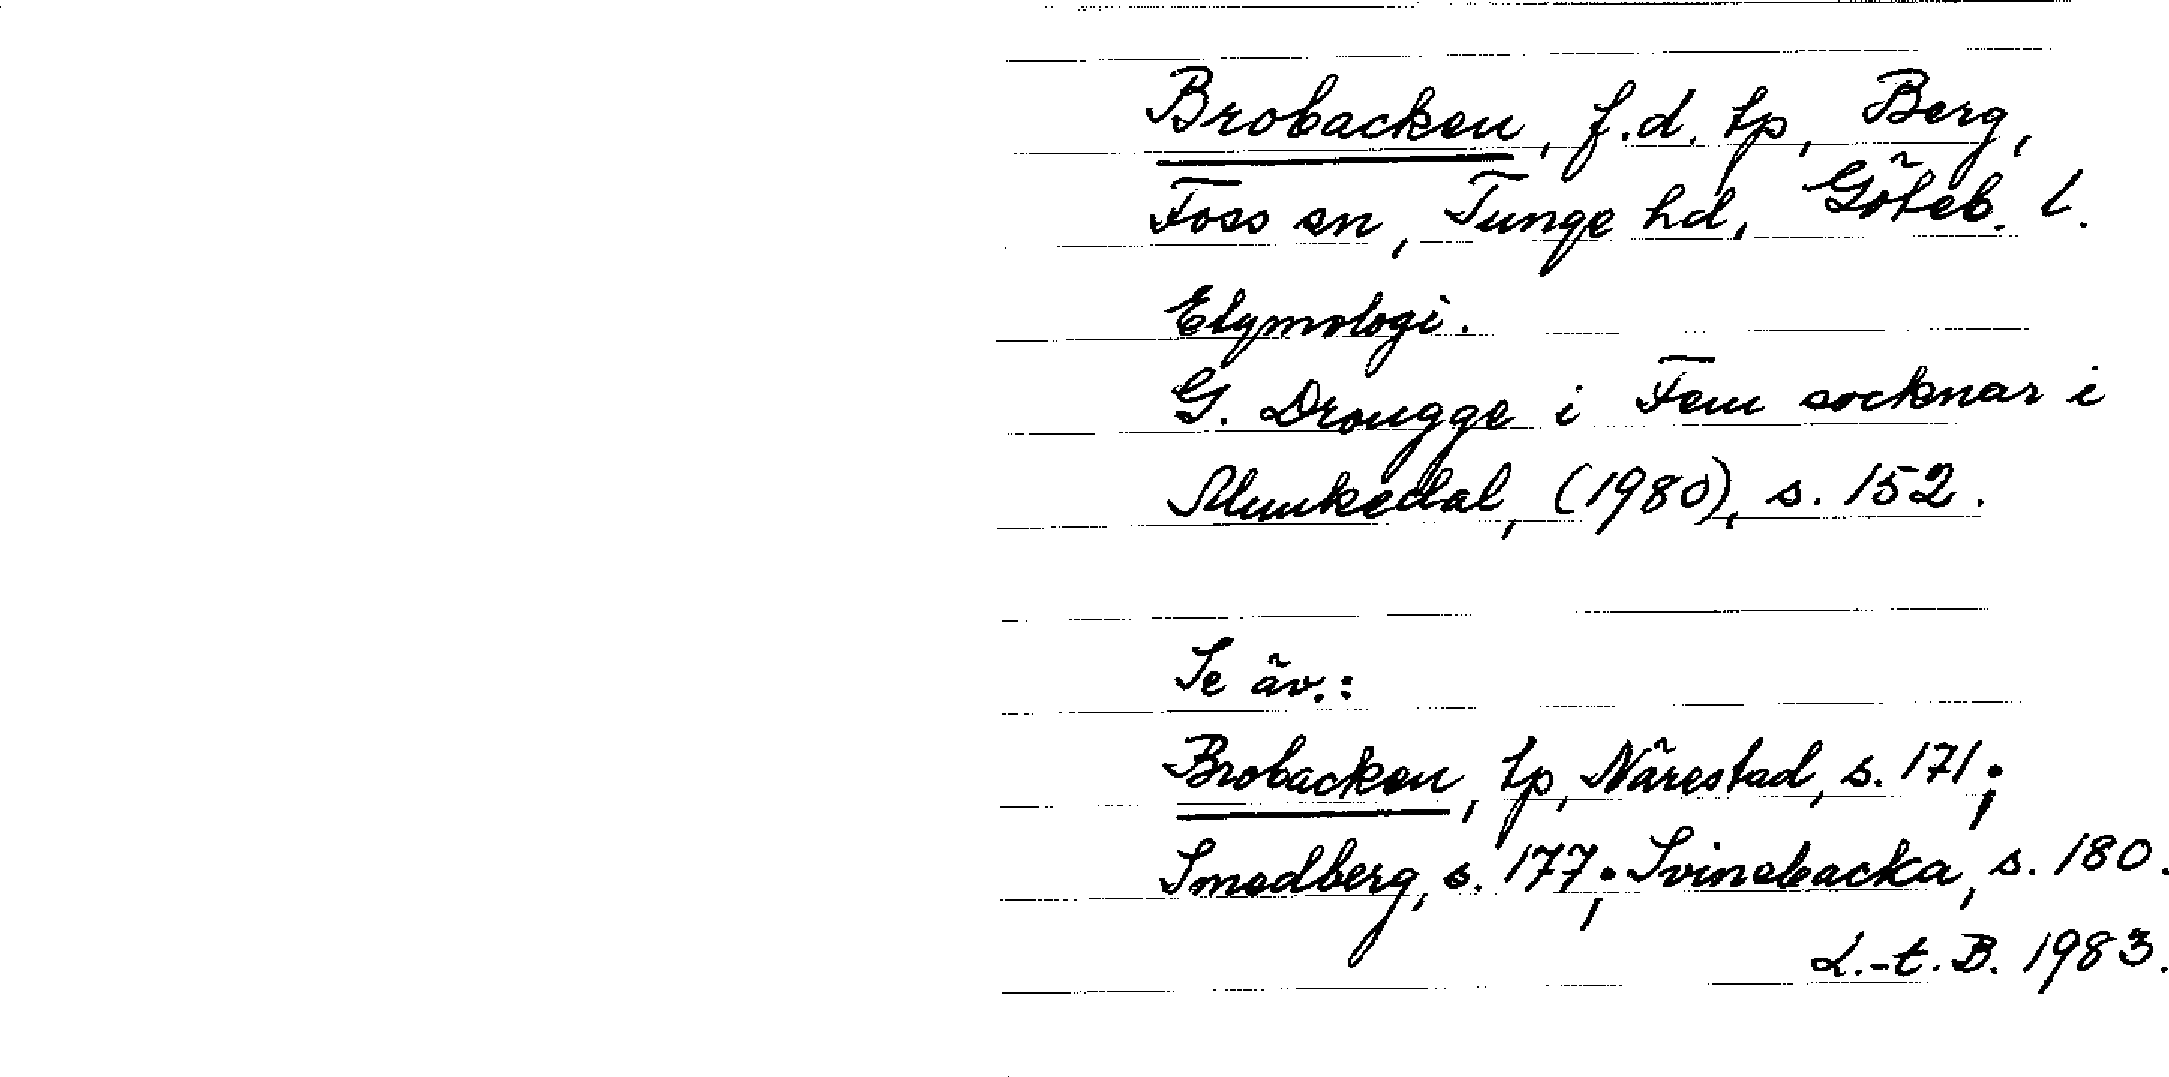 Brobacken, f.d. tp, Berg,
Foss sn, Tunge hd, Göteb. l.
Etymologi.
G. Drougge i Fem socknar i
Munkedal, (1980), s. 152.
Se äv.:
Brobacken, tp, Närestad, s. 171;
Smedberg, s. 177; Svinebacka, s. 180.
L.-t. B. 1983.